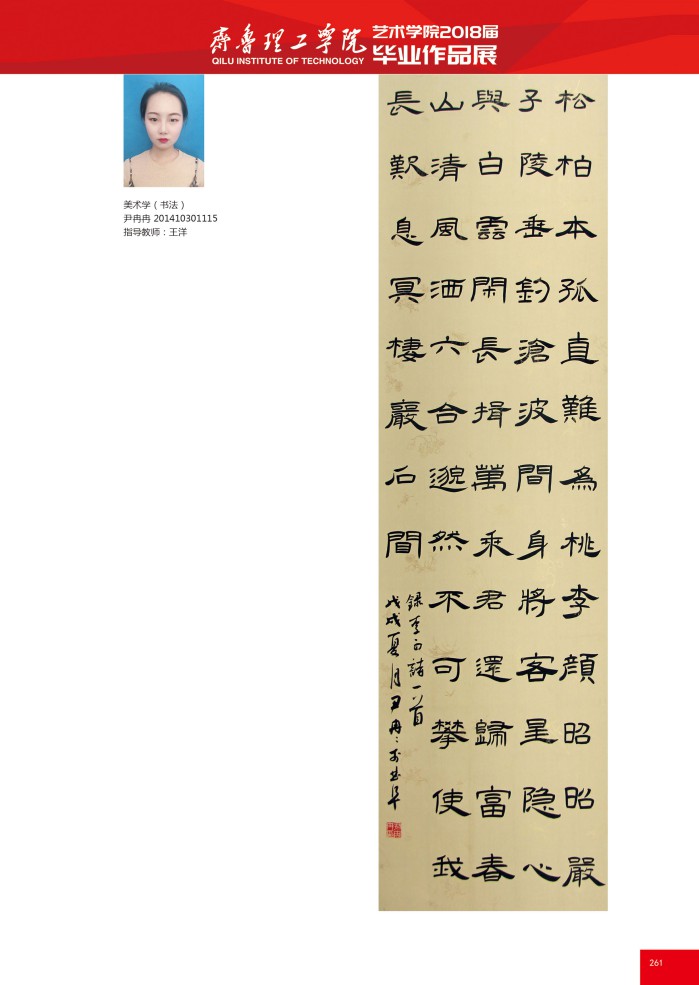 齊魯理工學院
QILU INSTITUTE OF TECHNOLOGY
艺术学院2018届
毕业作品展
美术学（书法）
尹冉冉 201410301115
指导教师：王洋
松柏本孤直難爲桃李顔昭昭嚴
子陵垂釣滄波間身將客星隐心
與白雲閑長揖萬乘君還歸富春
山清風洒六合邈然不可攀使我
長歎息冥棲巖石間
録李白詩一首
戊戌夏月尹冉〻於曲阜
261